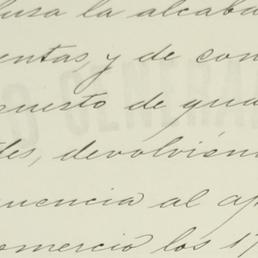 usa la alcaba
entas y de con
puesto de gua
des, devolvién
uencia al ap
omercio los 17